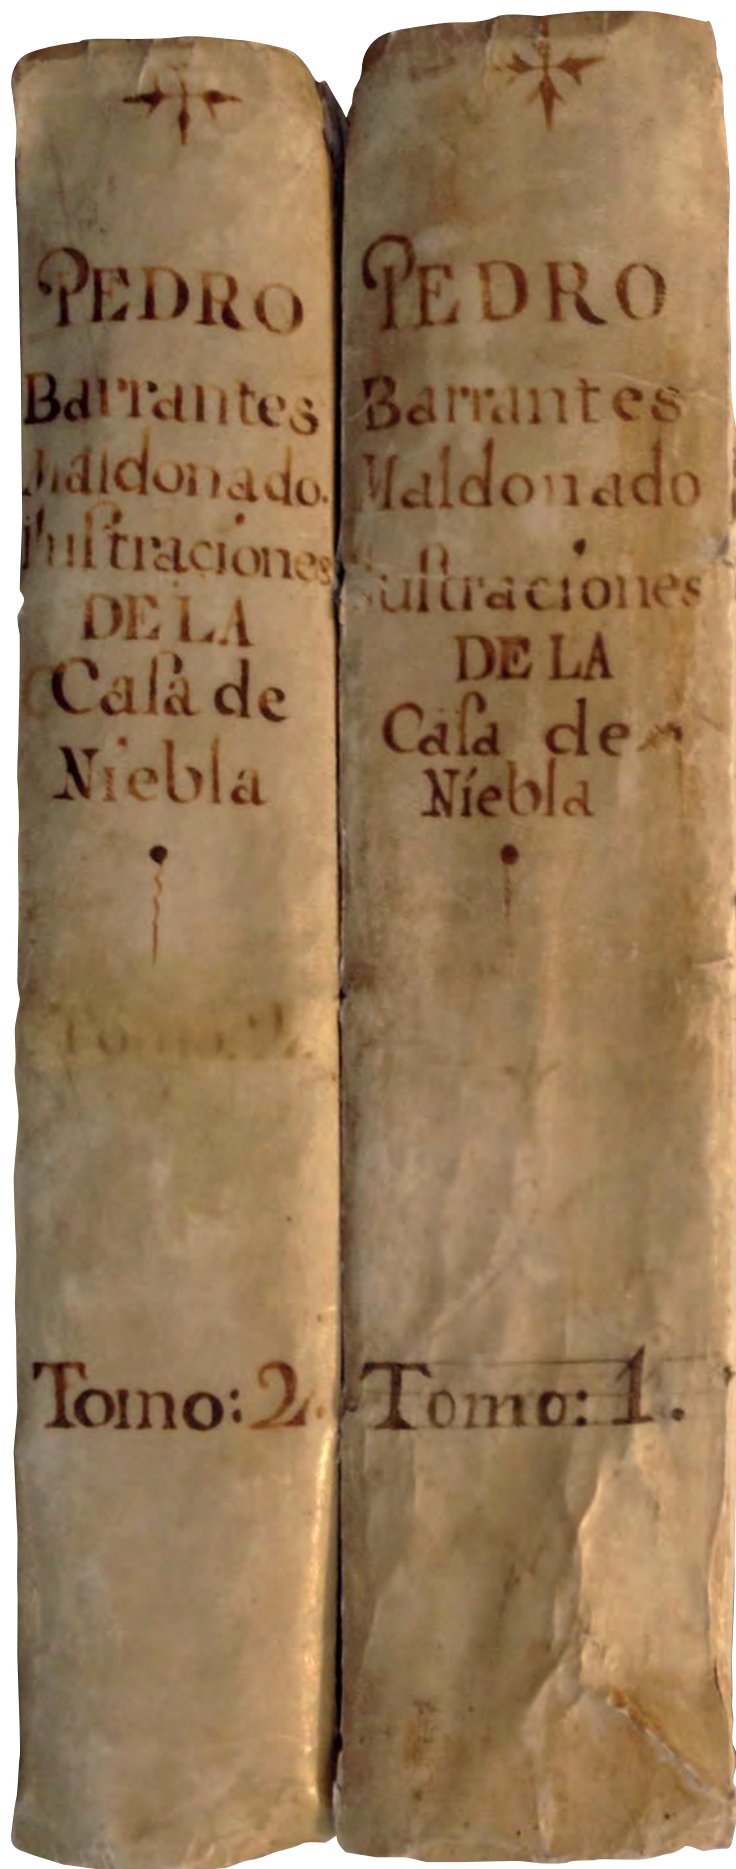 PEDRO
Barrantes
Maldonado.
iluſtraciones
DE LA
Caſa de
Niebla
Tomo: 2.
Tomo: 2.
PEDRO
Barrantes
Maldonado
iluſtraciones
DE LA
Caſa de
Niebla
Tomo: 1.